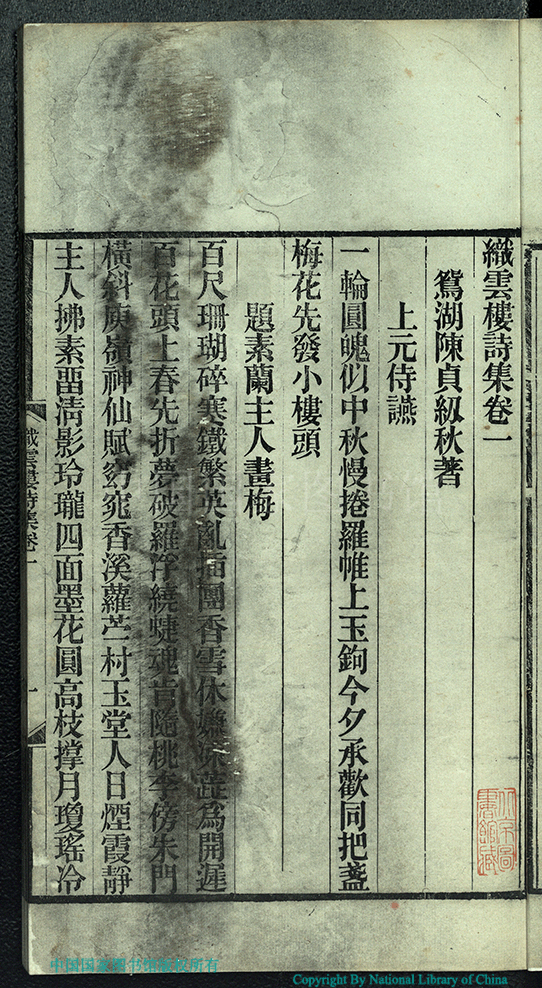 織雲樓詩集卷一
鴛湖陳貞紉秋著
上元侍讌
一輪圓魄似中秋慢捲羅帷上玉鉤今夕承歡同把盞
梅花先發小樓頭
題素蘭主人畫梅
百尺珊瑚碎寒鐵繁英亂插團香雪休嫌深蕋為開遲
百花頭上春先折夢破羅浮繞蜨魂肯隨桃李傍朱門
橫斜庾嶺神仙賦窈窕香溪蘿苧村玉堂人日煙霞靜
主人拂素畱清影玲瓏四面墨花圓高枝撐月瓊瑤冷
織雲樓詩集卷一
一
北京圖
書館藏
中国国家图书馆版权所有
Copyright By National Library of China